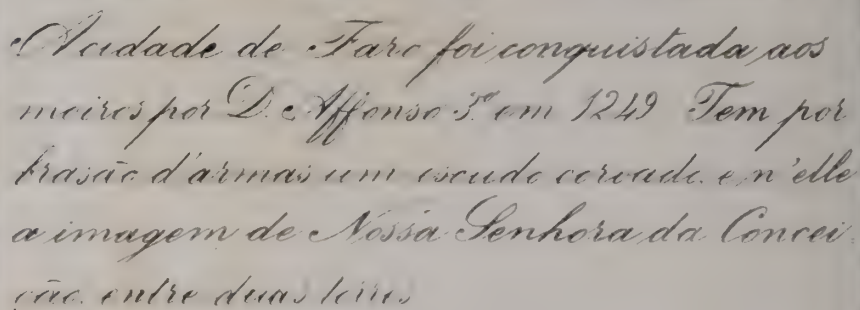 A cidade de Faro foi conquistada aos
moiros por D. Affonso 3º em 1249 Tem por
brasão d'armas um escudo coroado e n'elle
a imagem de Nossa Senhora da Concei
ção entre duas torres